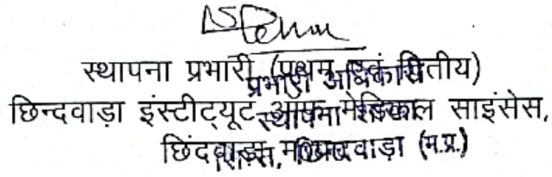 स्थापना प्रभारी (प्रथम एवं द्वितीय)
प्रभारी अधिकारी
छिन्दवाड़ा इंस्टीट्यूट ऑफ मेडिकल साइंसेस,
स्थापना शाखा
छिंदवाड़ा म.प्र.
सिम्स, छिन्दवाड़ा (म.प्र.)